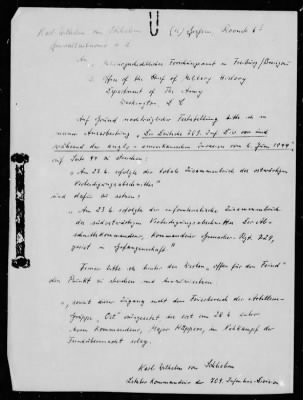 Karl Wilhelm von Schlieben (16) Gießen,
Generalleutnant a. D.
An 1. Militärgeschichtliches Forschungsamt in Freiburg/Breisgau
2. Office of the Chief of Military History
Department of The Army
Washington, D. C.
Auf Grund nachträglicher Feststellung bitte ich in
meiner Ausarbeitung „Die Deutsche 709. Inf. Div. vor und
während der anglo-amerikanischen Invasion vom 6. Juni 1944"
auf Seite zu streichen:
„Am 23.6. erfolgte der totale Zusammenbruch des ostwärtigen
Verteidigungsabschnittes"
und dafür zu setzen:
„Am 23.6. erfolgte der Zusammenbruch
des südostwärtigen Verteidigungsabschnittes. Der Ab-
schnittskommandeur, Kommandeur Grenadier-Rgt. 729,
geriet in Gefangenschaft."
Ferner bitte ich hinter den Worten „offen für den Feind"
den Punkt zu streichen und hinzuzusetzen:
„, soweit dieser Zugang nicht dem Feuerbereich der Artillerie-
gruppe „Ost" die erst am 26.6. unter
ihrem Kommandeur, Major Küppers, im Nahkampf der
Feindübermacht erlag.
Karl Wilhelm von Schlieben
Letzter Kommandeur der 709. Infanterie-Division